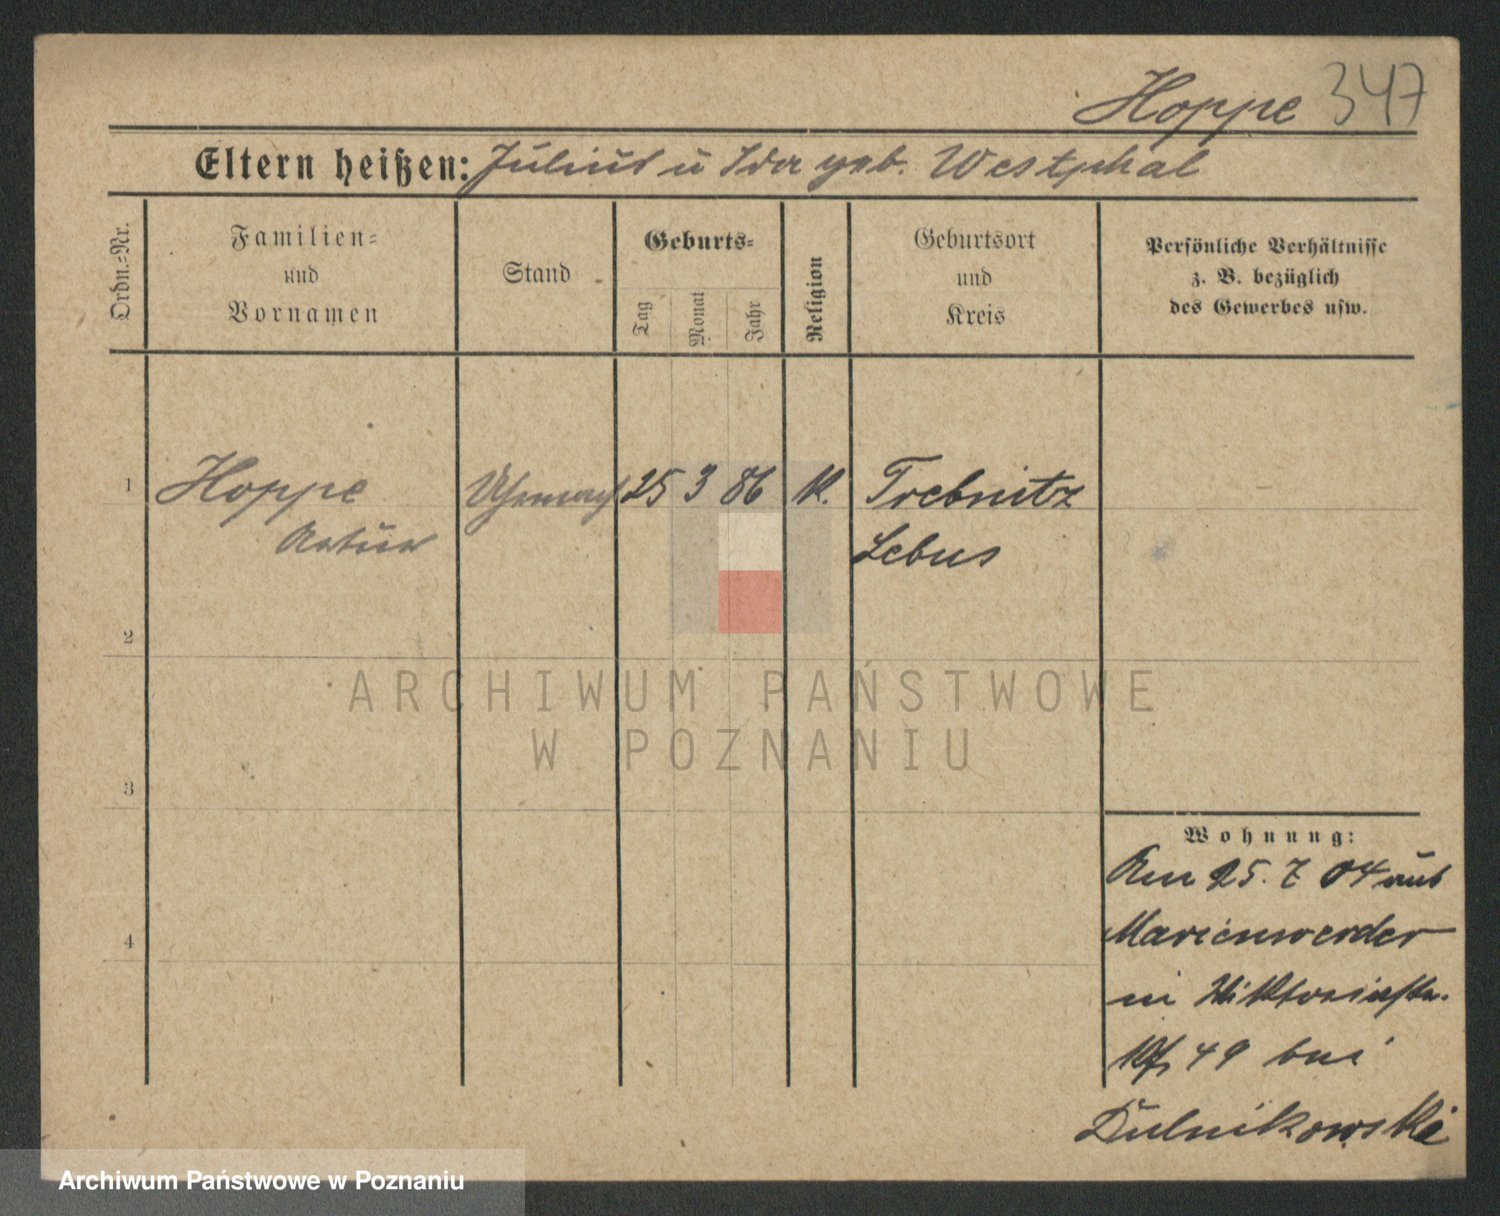 Hoppe 347
Eltern heißen: Julius u Ida geb. Westphal
Ordn.-Nr.
Familien-
und
Vornamen
Stand
Geburts-
Tag
Monat
Jahr
Religion
Geburtsort
und
Kreis
Persönliche Verhältnisse
z. B. bezüglich
des Gewerbes usw.
1 Hoppe Uhrmach 25 3 86 K. Trebnitz
Artur Lebus
2
3
4
Wohnung:
Am 25. 7 04 aus
Marienwerder
in Viktoriastr.
49 bei
Dulnikowski
ARCHIWUM PAŃSTWOWE
W POZNANIU
Archiwum Państwowe w Poznaniu